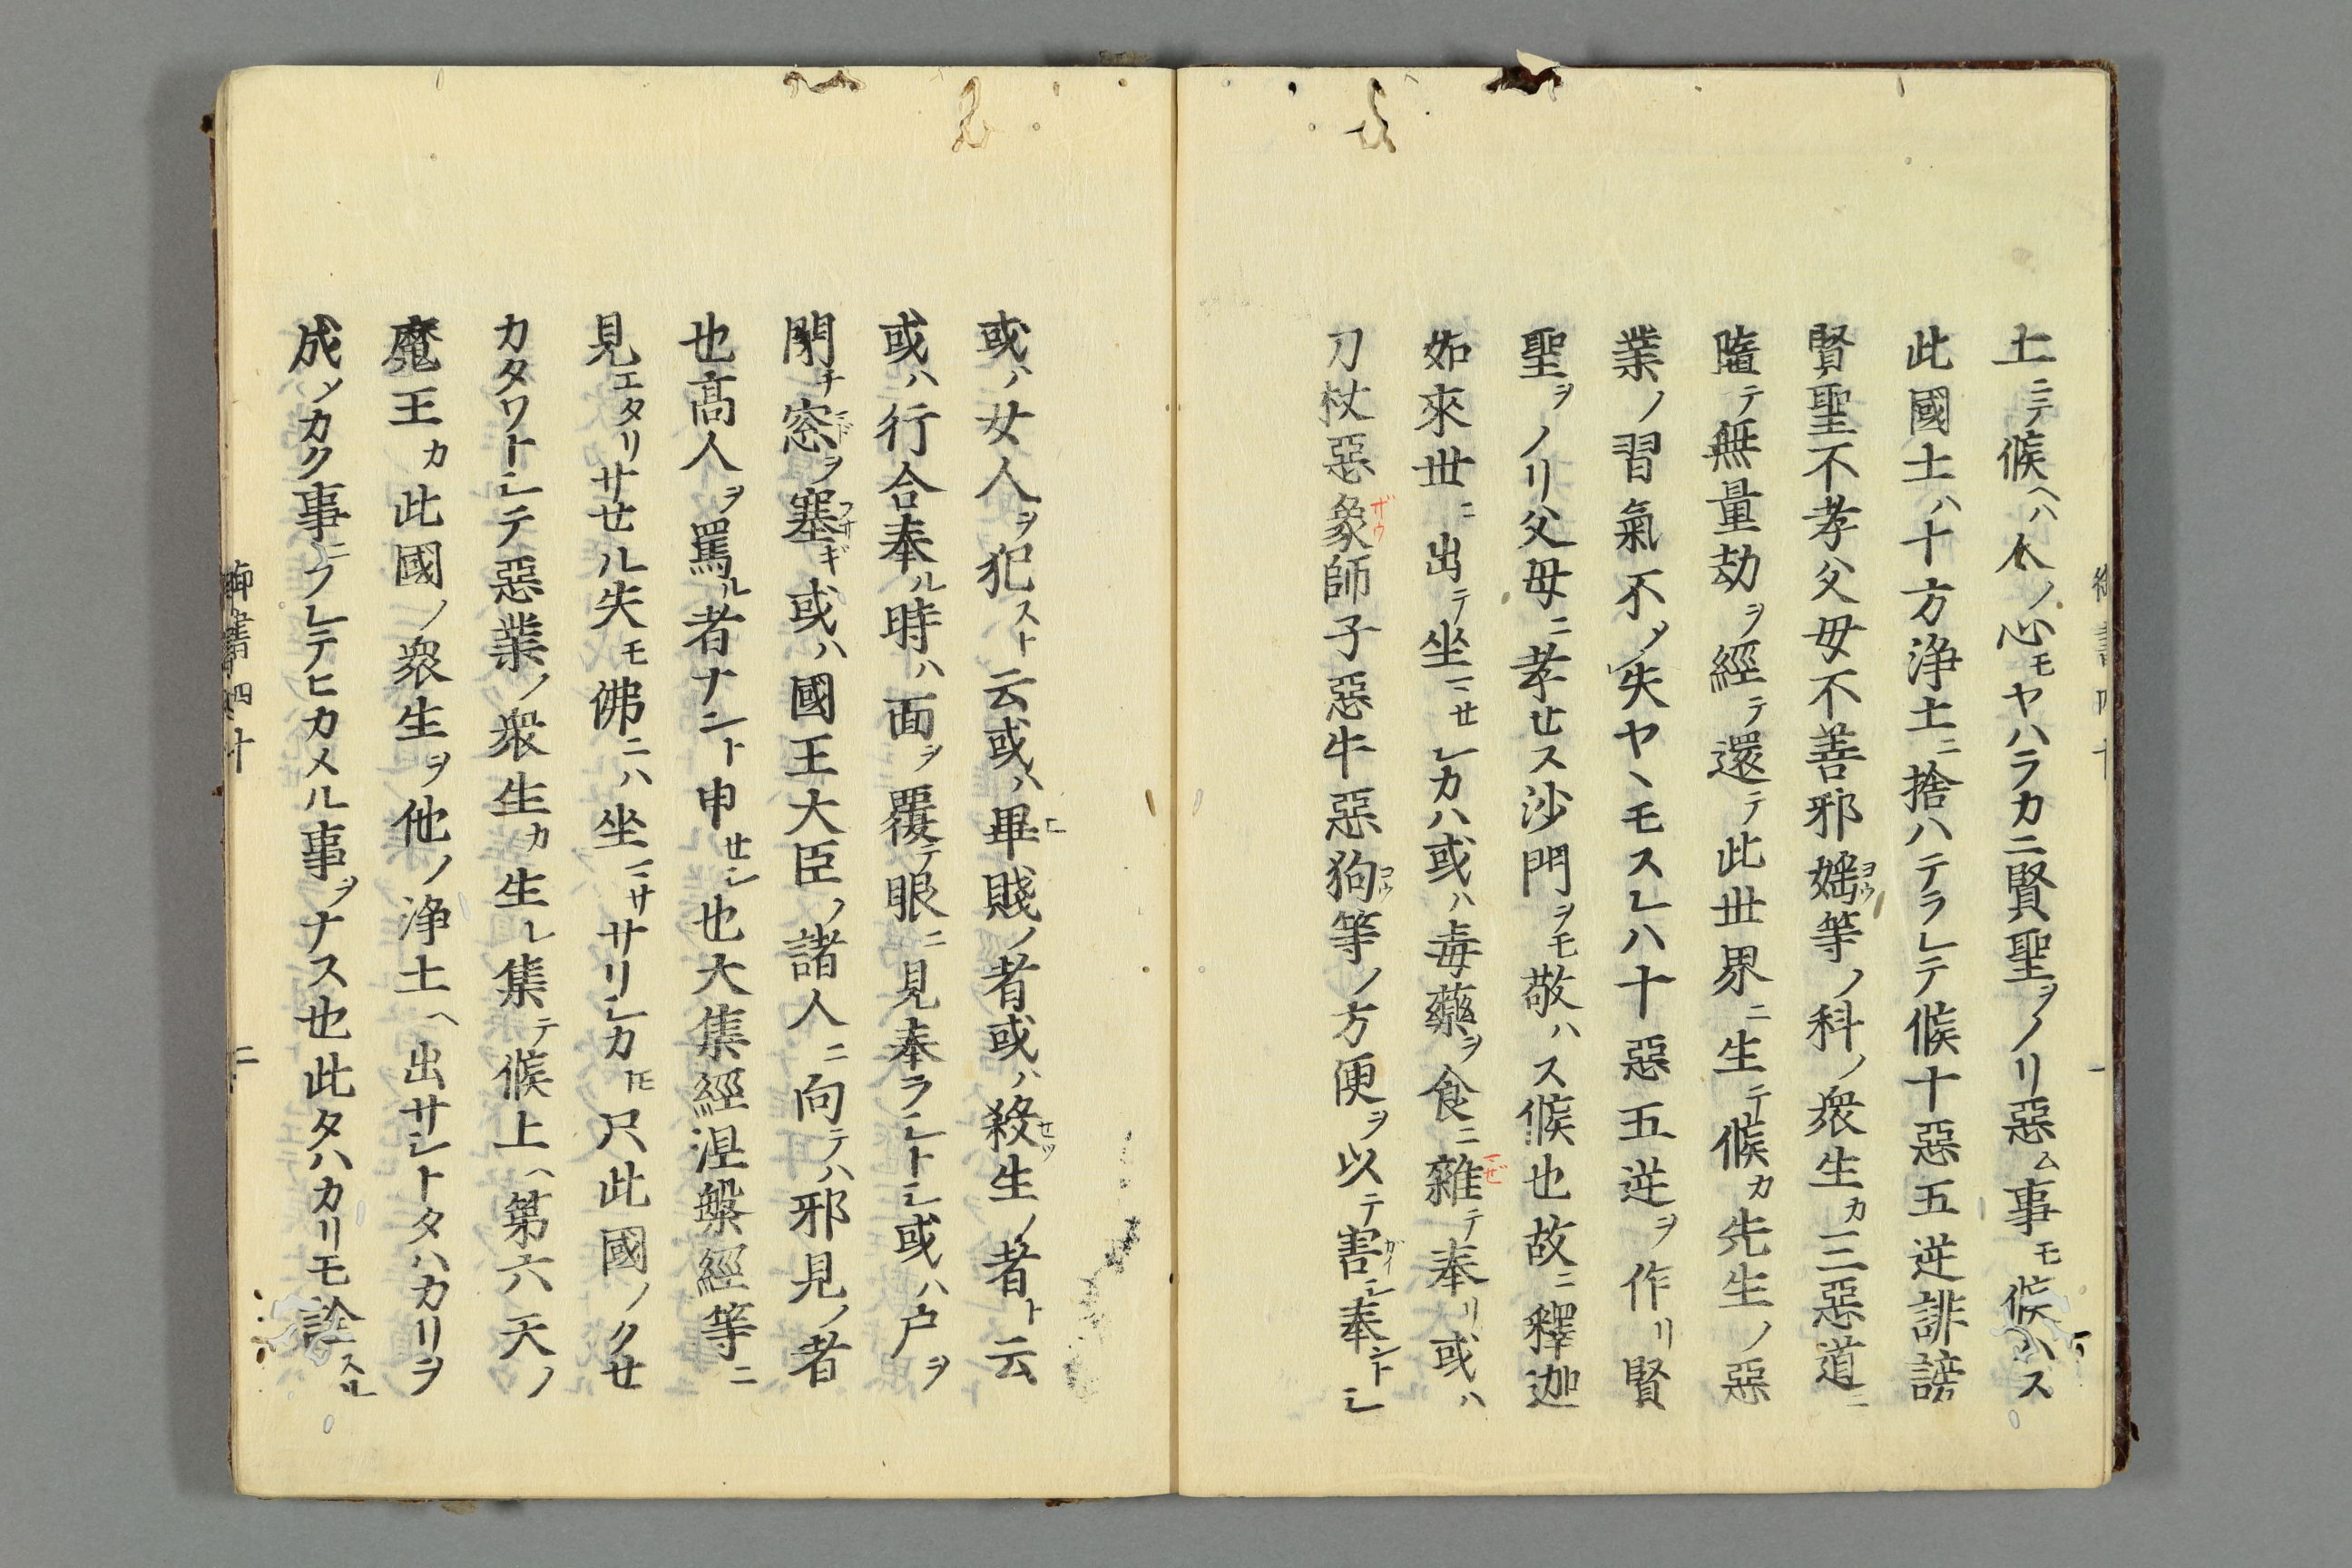 土ニテ候ヘハ人ノ心モヤハラカニ賢聖ヲノリ惡ム事モ候ハス
此國土ハ十方淨土ニ捨ハテラレテ候十惡五逆誹謗
賢聖不孝父母不善邪婬等ノ科ノ衆生カ三惡道ニ
隨テ無量劫ヲ經テ還テ此世界ニ生テ候カ先生ノ惡
業ノ習氣不メ失ヤヽモスレハ十惡五逆ヲ作リ賢
聖ヲノリ父母ニ孝セス沙門ヲモ敬ハス候也故ニ釋迦
如來世ニ出テ坐マセシカハ或ハ毒藥ヲ食ニ雜テ奉リ或ハ
刀杖惡象師子惡牛惡狗等ノ方便ヲ以テ害シ奉ントシ
或ハ女人ヲ犯スト云或ハ卑賤ノ者或ハ殺生ノ者ト云
或ハ行合奉ル時ハ面ヲ覆テ眼ニ見奉ラシトシ或ハ戸ヲ
閉チ窓ヲ塞キ或ハ國王大臣ノ諸人ニ向テハ邪見ノ者
也髙人ヲ罵ル者ナント申セシ也大集經涅槃經等ニ
見エタリサセル失モ佛ニハ坐マササリシカトモ只此國ノクセ
カタワトシテ惡業ノ衆生カ生レ集テ候上ヘ第六天ノ
魔王カ此國ノ衆生ヲ他ノ淨土ヘ出サシトタハカリヲ
成メカク事ニフレテヒカメル事ヲナス也此タハカリモ詮スル
御書四十
二